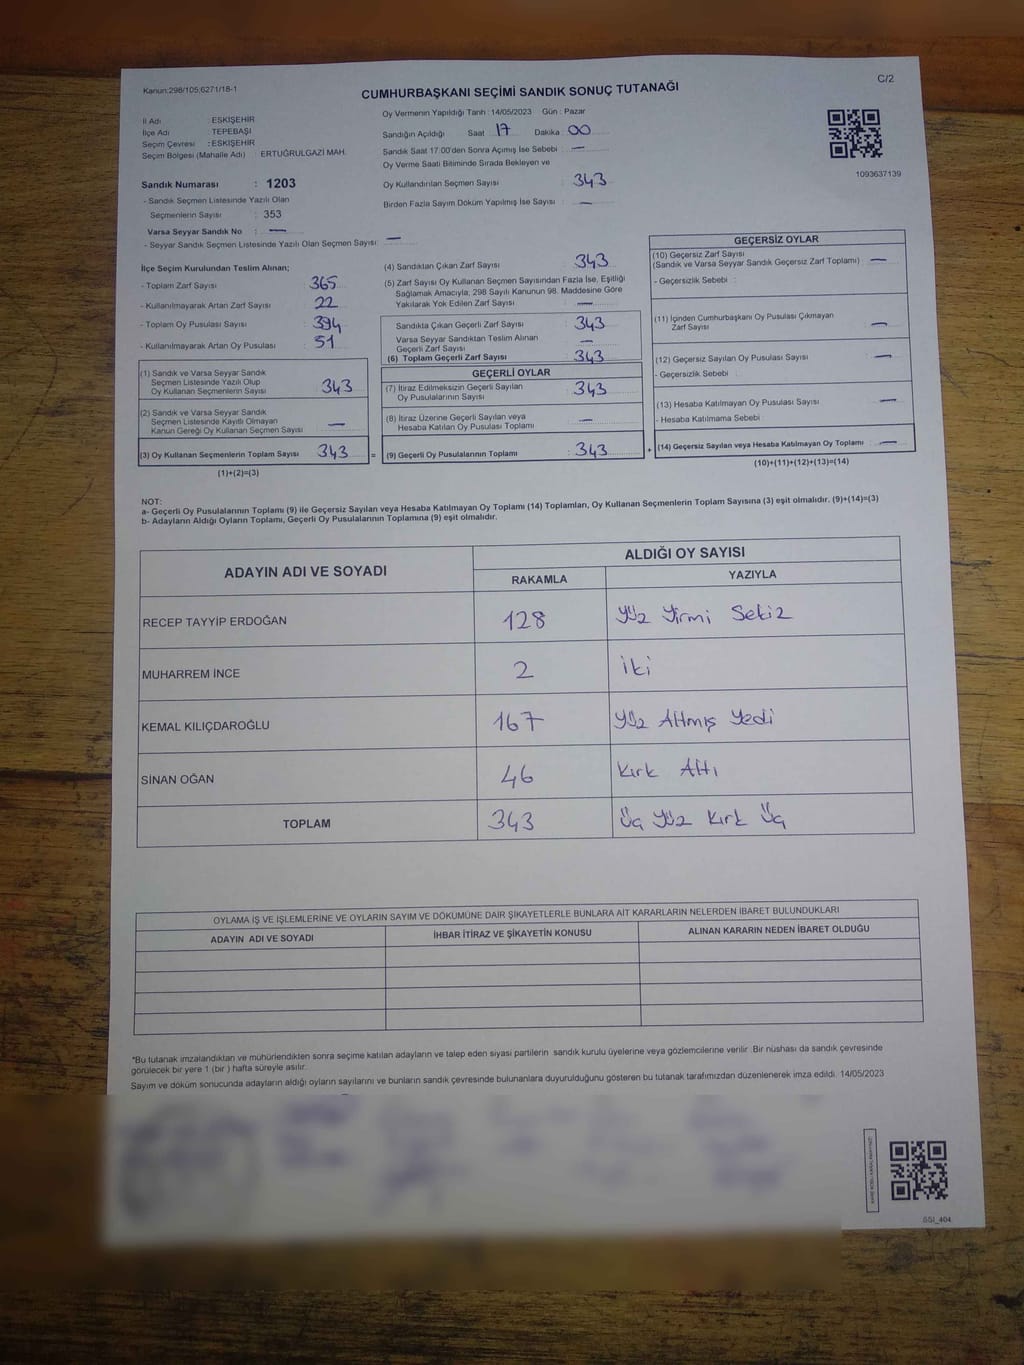 Kanun:298/105;6271/18-1
C/2
CUMHURBAŞKANI SEÇİMİ SANDIK SONUÇ TUTANAĞI
İl Adı : ESKİŞEHİR
İlçe Adı : TEPEBAŞI
Seçim Çevresi : ESKİŞEHİR
Seçim Bölgesi (Mahalle Adı) : ERTUĞRULGAZİ MAH.
Sandık Numarası : 1203
- Sandık Seçmen Listesinde Yazılı Olan
Seçmenlerin Sayısı : 353
Varsa Seyyar Sandık No : —
- Seyyar Sandık Seçmen Listesinde Yazılı Olan Seçmen Sayısı: —
Oy Vermenin Yapıldığı Tarih : 14/05/2023 Gün : Pazar
Sandığın Açıldığı Saat : 17 Dakika : 00
Sandık Saat 17.00'den Sonra Açımış İse Sebebi : —
Oy Verme Saati Bitiminde Sırada Bekleyen ve
Oy Kullandırılan Seçmen Sayısı : 343
Birden Fazla Sayım Döküm Yapılmış İse Sayısı : —
1093637139
İlçe Seçim Kurulundan Teslim Alınan;
- Toplam Zarf Sayısı : 365
- Kullanılmayarak Artan Zarf Sayısı : 22
- Toplam Oy Pusulası Sayısı : 394
- Kullanılmayarak Artan Oy Pusulası : 51
(1) Sandık ve Varsa Seyyar Sandık
Seçmen Listesinde Yazılı Olup
Oy Kullanan Seçmenlerin Sayısı : 343
(2) Sandık ve Varsa Seyyar Sandık
Seçmen Listesinde Kayıtlı Olmayan
Kanun Gereği Oy Kullanan Seçmen Sayısı : —
(3) Oy Kullanan Seçmenlerin Toplam Sayısı : 343 =
(1)+(2)=(3)
(4) Sandıktan Çıkan Zarf Sayısı : 343
(5) Zarf Sayısı Oy Kullanan Seçmen Sayısından Fazla İse, Eşitliği
Sağlamak Amacıyla, 298 Sayılı Kanunun 98. Maddesine Göre
Yakılarak Yok Edilen Zarf Sayısı : —
Sandıkta Çıkan Geçerli Zarf Sayısı : 343
Varsa Seyyar Sandıktan Teslim Alınan
Geçerli Zarf Sayısı : —
(6) Toplam Geçerli Zarf Sayısı : 343
GEÇERLİ OYLAR
(7) İtiraz Edilmeksizin Geçerli Sayılan
Oy Pusulalarının Sayısı : 343
(8) İtiraz Üzerine Geçerli Sayılan veya
Hesaba Katılan Oy Pusulası Toplamı : —
(9) Geçerli Oy Pusulalarının Toplamı : 343 +
GEÇERSİZ OYLAR
(10) Geçersiz Zarf Sayısı
(Sandık ve Varsa Seyyar Sandık Geçersiz Zarf Toplamı) : —
- Geçersizlik Sebebi :
(11) İçinden Cumhurbaşkanı Oy Pusulası Çıkmayan
Zarf Sayısı : —
(12) Geçersiz Sayılan Oy Pusulası Sayısı : —
- Geçersizlik Sebebi :
(13) Hesaba Katılmayan Oy Pusulası Sayısı : —
- Hesaba Katılmama Sebebi :
(14) Geçersiz Sayılan veya Hesaba Katılmayan Oy Toplamı : —
(10)+(11)+(12)+(13)=(14)
NOT:
a- Geçerli Oy Pusulalarının Toplamı (9) ile Geçersiz Sayılan veya Hesaba Katılmayan Oy Toplamı (14) Toplamları, Oy Kullanan Seçmenlerin Toplam Sayısına (3) eşit olmalıdır. (9)+(14)=(3)
b- Adayların Aldığı Oyların Toplamı, Geçerli Oy Pusulalarının Toplamına (9) eşit olmalıdır.
ADAYIN ADI VE SOYADI
ALDIĞI OY SAYISI
RAKAMLA YAZIYLA
RECEP TAYYİP ERDOĞAN 128 Yüz Yirmi Sekiz
MUHARREM İNCE 2 İki
KEMAL KILIÇDAROĞLU 167 Yüz Altmış Yedi
SİNAN OĞAN 46 Kırk Altı
TOPLAM 343 Üç Yüz Kırk Üç
OYLAMA İŞ VE İŞLEMLERİNE VE OYLARIN SAYIM VE DÖKÜMÜNE DAİR ŞİKAYETLERLE BUNLARA AİT KARARLARIN NELERDEN İBARET BULUNDUKLARI
ADAYIN ADI VE SOYADI İHBAR İTİRAZ VE ŞİKAYETİN KONUSU ALINAN KARARIN NEDEN İBARET OLDUĞU
*Bu tutanak imzalandıktan ve mühürlendikten sonra seçime katılan adayların ve talep eden siyasi partilerin sandık kurulu üyelerine veya gözlemcilerine verilir. Bir nüshası da sandık çevresinde
görülecek bir yere 1 (bir) hafta süreyle asılır.
Sayım ve döküm sonucunda adayların aldığı oyların sayılarını ve bunların sandık çevresinde bulunanlara duyurulduğunu gösteren bu tutanak tarafımızdan düzenlenerek imza edildi. 14/05/2023